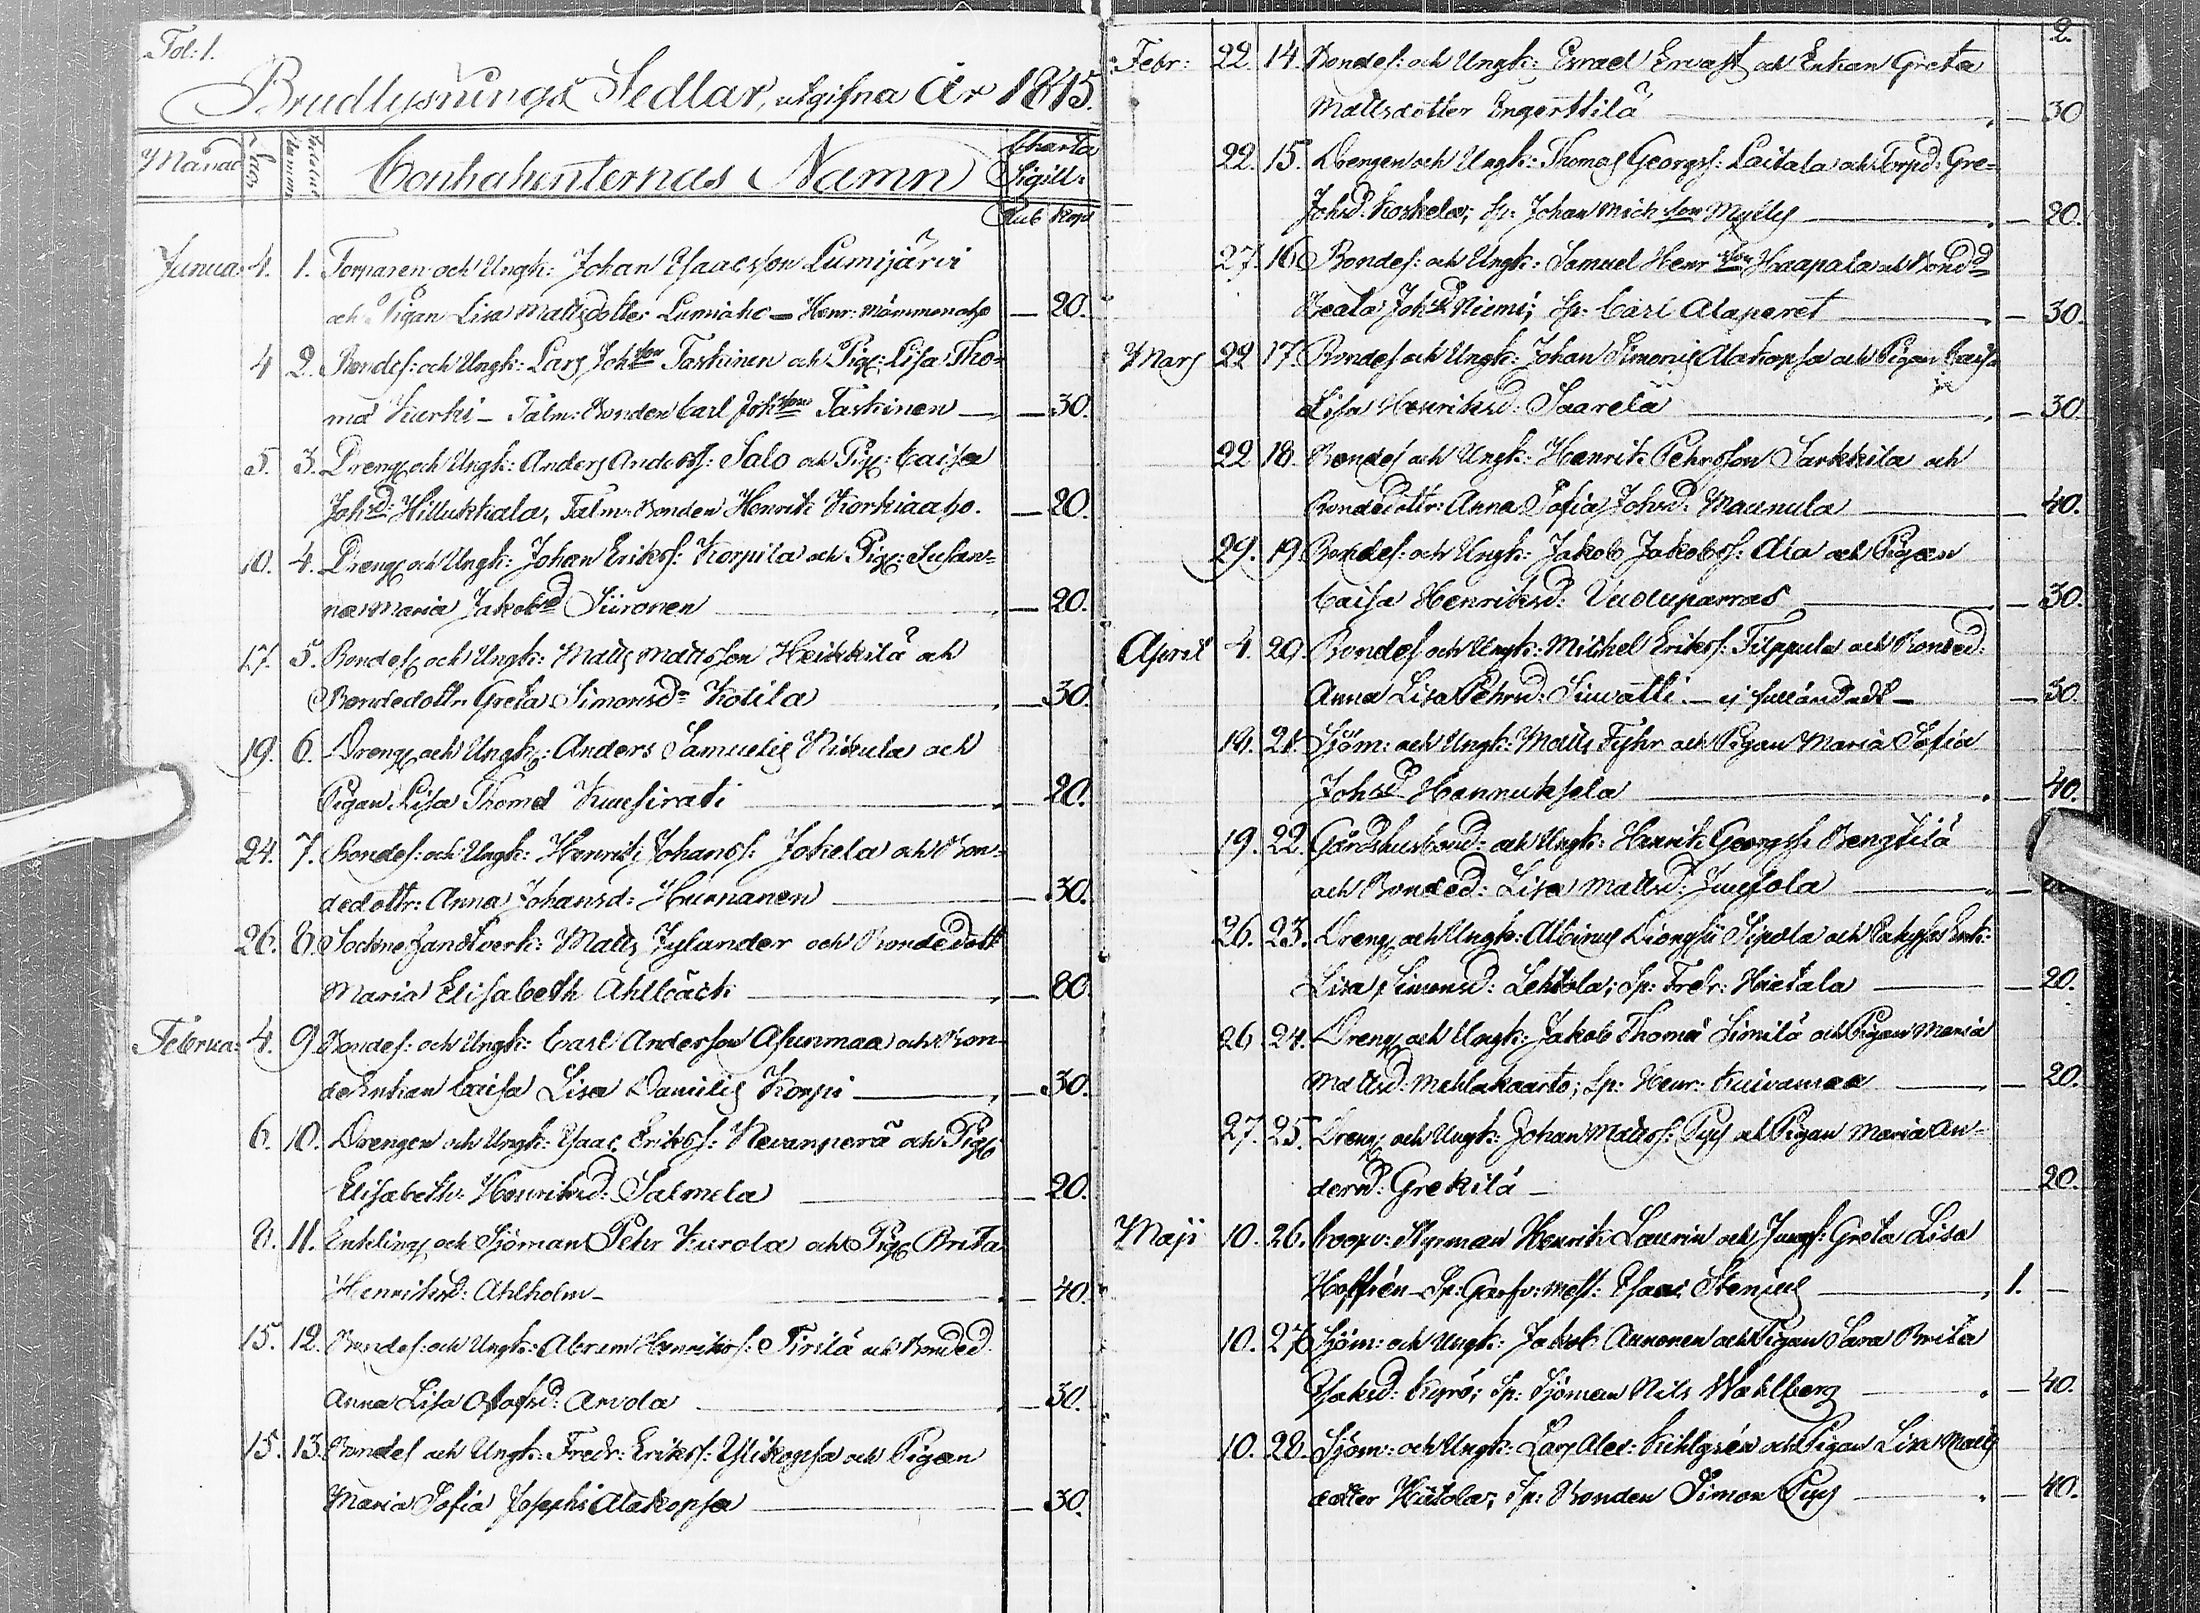 Fol: 1.
Brudlysnings Sedlar, utgifna År 1845.
Månad Dag Nummer Contrahenternas Namn Charta Sigill:
Rub Kop
Janua: 4. 1. Torparen och Ungk: Johan Isaacsson Lumijärvi
och Pigan Lisa Mattsdotter Lumiaho — Henr: Mämmenaho — 20.
4 2. Bondes: och Ungk: Lars Johsson Taskinen och Pig: Lisa Tho-
md Kurki — Talm: Bonden Carl Johsson Taskinen — 30.
5. 3. Dreng och Ungk: Anders Anderss: Salo och Pig: Caisa
Johsd: Hillukkala, Talm: Bonden Henrik Korkiaaho. — 20.
10. 4. Dreng och Ungk: Johan Erikss: Korpila och Pig: Susan-
na Maria Jakobsd Siironen — 20.
17. 5. Bondes och Ungk: Matts Mattsson Heikkilä och
Bondedottr Greta Simonsd Kotila — 30.
19. 6. Dreng och Ungk: Anders Samuelis Nikula och
Pigan Lisa Thomd Kuusirati — 20.
24. 7. Bondes: och Ungk: Henrik Johanss: Jokela och Bon-
dedottr: Anna Johansd: Hurnanen — 30.
26. 8. Sockne handtverk: Matts Jylander och Bondedott
Maria Elisabeth Ahlbäck — 80.
Februa: 4. 9. Bondes: och Ungk: Carl Andersson Asunmaa och Bon-
de Enkan Caisa Lisa Danielis Korpi — 30.
6. 10. Drengen och Ungk: Isaac Erikss: Nevanperä och Pig
Elisabeth Henriksd: Salmela — 20.
8. 11. Enkling och Sjöman Pehr Kurola och Pig Brita
Henriksd: Ahlholm — 40.
15. 12. Bondes: och Ungk: Abram Henrikss: Tirilä och Bonded:
Anna Lisa Olofsd: Arvola — 30.
15. 13. Bondes och Ungk: Fredr: Erikss: Ylikopsa och Pigan
Maria Sofia Josephi Alakopsa — 30.
2.
Febr: 22. 14. Bondes: och Ungk: Israel Ervast och Enkan Greta
Mattsdotter Ingerttilä — 30
22. 15. Drengen och Ungk: Thomas Georgss: Laitala och Torpd: Gre-
Johsd: Koskela; Sp: Johan Michsson Mylly — 20.
27. 16 Bondes: och Ungk: Samuel Henrsson Haapala och Bondd
Beata Johsd Niemi; Sp: Carl Alaperet — 30.
Mars 22 17. Bondes och Ungk: Johan Simonis Alakopsa och Pigan Caisa
Lisa Henriksd: Saarela — 30.
22 18. Bondes och Ungk: Henrik Pehrsson Sarkkila och
Bondedottr: Anna Sofia Johsd: Maunula — 40.
29. 19 Bondes: och Ungk: Jakob Jakobss: Ala och Pigan
Caisa Henriksd: Vuoluparras — 30.
April 4. 20. Bondes och Ungk: Michel Erikss: Filppula och Bonded:
Anna Lisa Pehrsd: Siuvatti. — ej fulländadt — 30.
19. 21. Sjöm: och Ungk: Matts Fyhr och Pigan Maria Sofia
Johsd Hannuksela — 40.
19. 22. Gårdshusbond: och Ungk: Henrik Georgss: Bengtilä
och Bonded: Lisa Mattsd: Juusola —
26. 23. Dreng och Ungk: Albinus Dionysii Sipola och Enk:
Lisa Simonsd: Lehtola; Sp: Fredr: Hietala — 20.
26 24. Dreng och Ungk: Jakob Thomæ Similä och Pigan Maria
Mattsd: Mehlakaarto; Sp: Henr: Kuivamaa — 20.
27. 25. Dreng och Ungk: Johan Mattss: Pyy och Pigan Maria An-
dersd: Grekilä — 20.
Maji 10. 26. Coopv: Styrman Henrik Laurin och Jungf: Greta Lisa
Hoffrén — Sp: Garfv: mest: Isaac Stenius — 1. —
10. 27 Sjöm: och Ungk: Jakob Aunonen och Pigan Sara Brita
Isaksd: Kyrö; Sp: Sjöman Nils Wahlberg — 40.
10. 28. Sjöm: och Ungk: Lars Alex: Kihlgrén och Pigan Lisa Matts
dotter Hietola; Sp: Bonden Simon Pyy — 40.